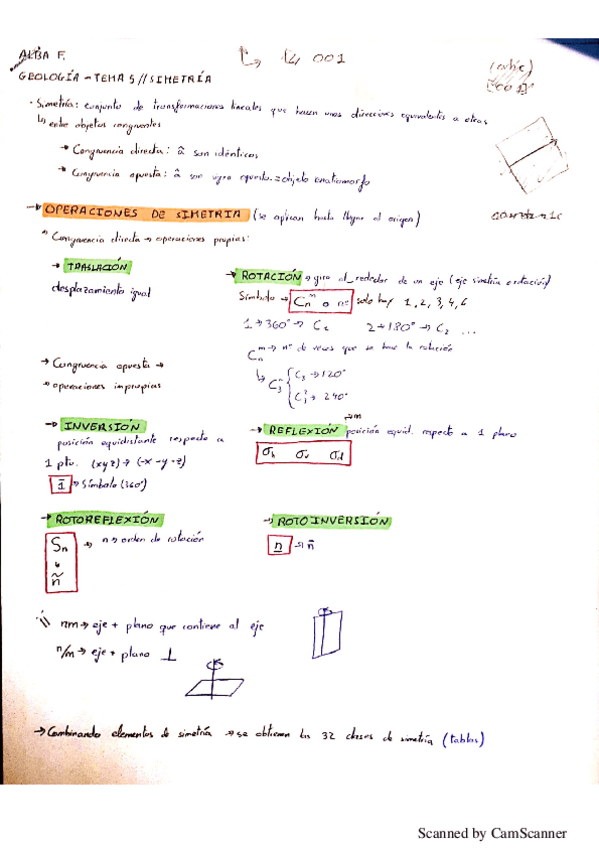 ALBA F.
001
GEOLOGÍA - TEMA 5 // SIMETRÍA
· Simetría: conjunto de transformaciones lineales que hacen unas direcciones equivalentes a otras
↳ entre objetos congruentes
→ Congruencia directa: â son idénticos
→ Congruencia opuesta: â son signo opuesto = objeto enantiomorfo
→ OPERACIONES DE SIMETRIA (se aplican hasta llegar al origen)
* Congruencia directa → operaciones propias:
→ TRASLACIÓN
desplazamiento igual
→ ROTACIÓN → giro alrededor de un eje (eje simetría o rotación)
Símbolo → Cₙᵐ o nᵐ solo hay 1, 2, 3, 4, 6
1 → 360° → C₁ 2 → 180° → C₂ ...
Cₙᵐ → nº de veces que se hace la rotación
C₃ → 120°
C₃² → 240°
→ Congruencia opuesta →
→ operaciones impropias
→ INVERSIÓN
posición equidistante respecto a
1 pto. (xyz) → (-x -y -z)
1̄ → Símbolo (360°)
→ m
→ REFLEXIÓN posición equid. respecto a 1 plano
σₕ σᵥ σd
→ ROTOREFLEXIÓN
Sₙ → n → orden de rotación
ñ
→ ROTOINVERSIÓN
n → n̄
nm → eje + plano que contiene al eje
n/m → eje + plano ⊥
→ Combinando elementos de simetría → se obtienen las 32 clases de simetría (tablas)
Scanned by CamScanner